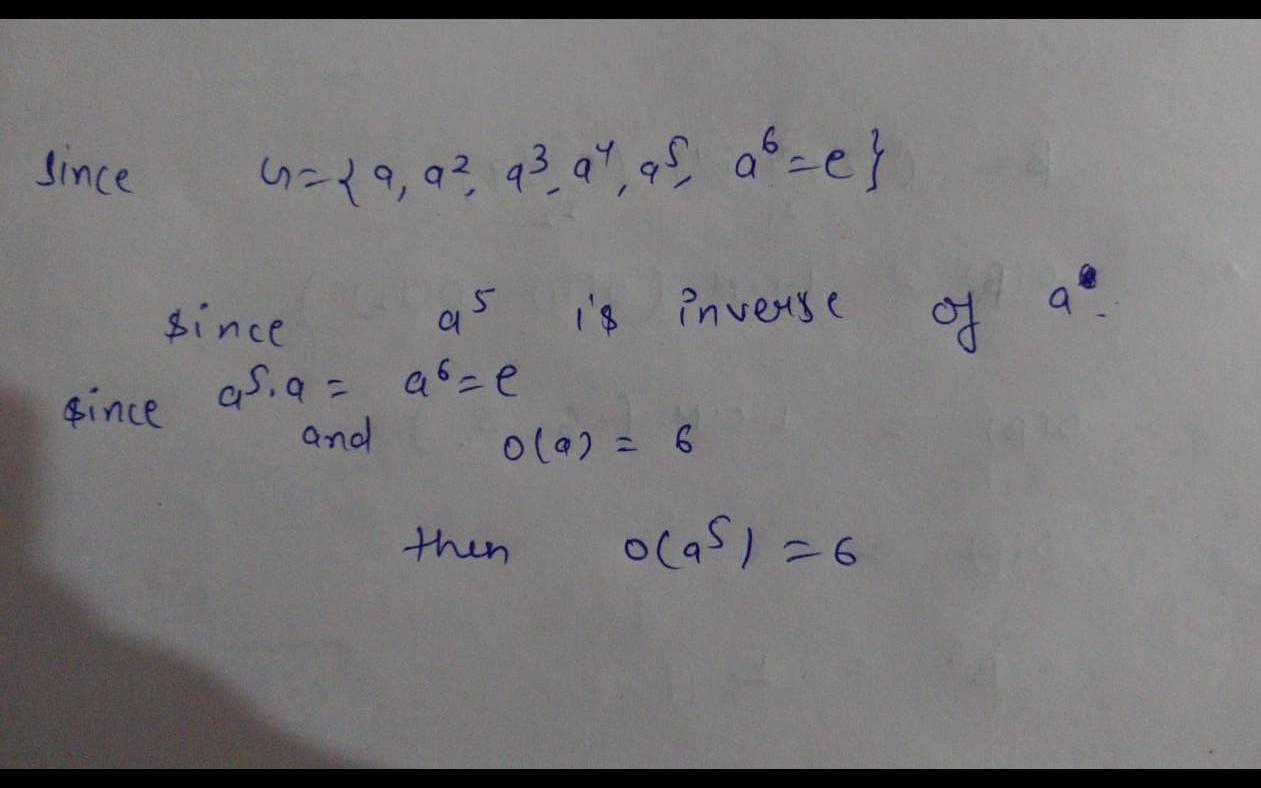 Since G={a, a², a³, a⁴, a⁵, a⁶=e}
Since a⁵ is inverse of a.
Since a⁵.a = a⁶=e
and o(a) = 6
then o(a⁵) = 6